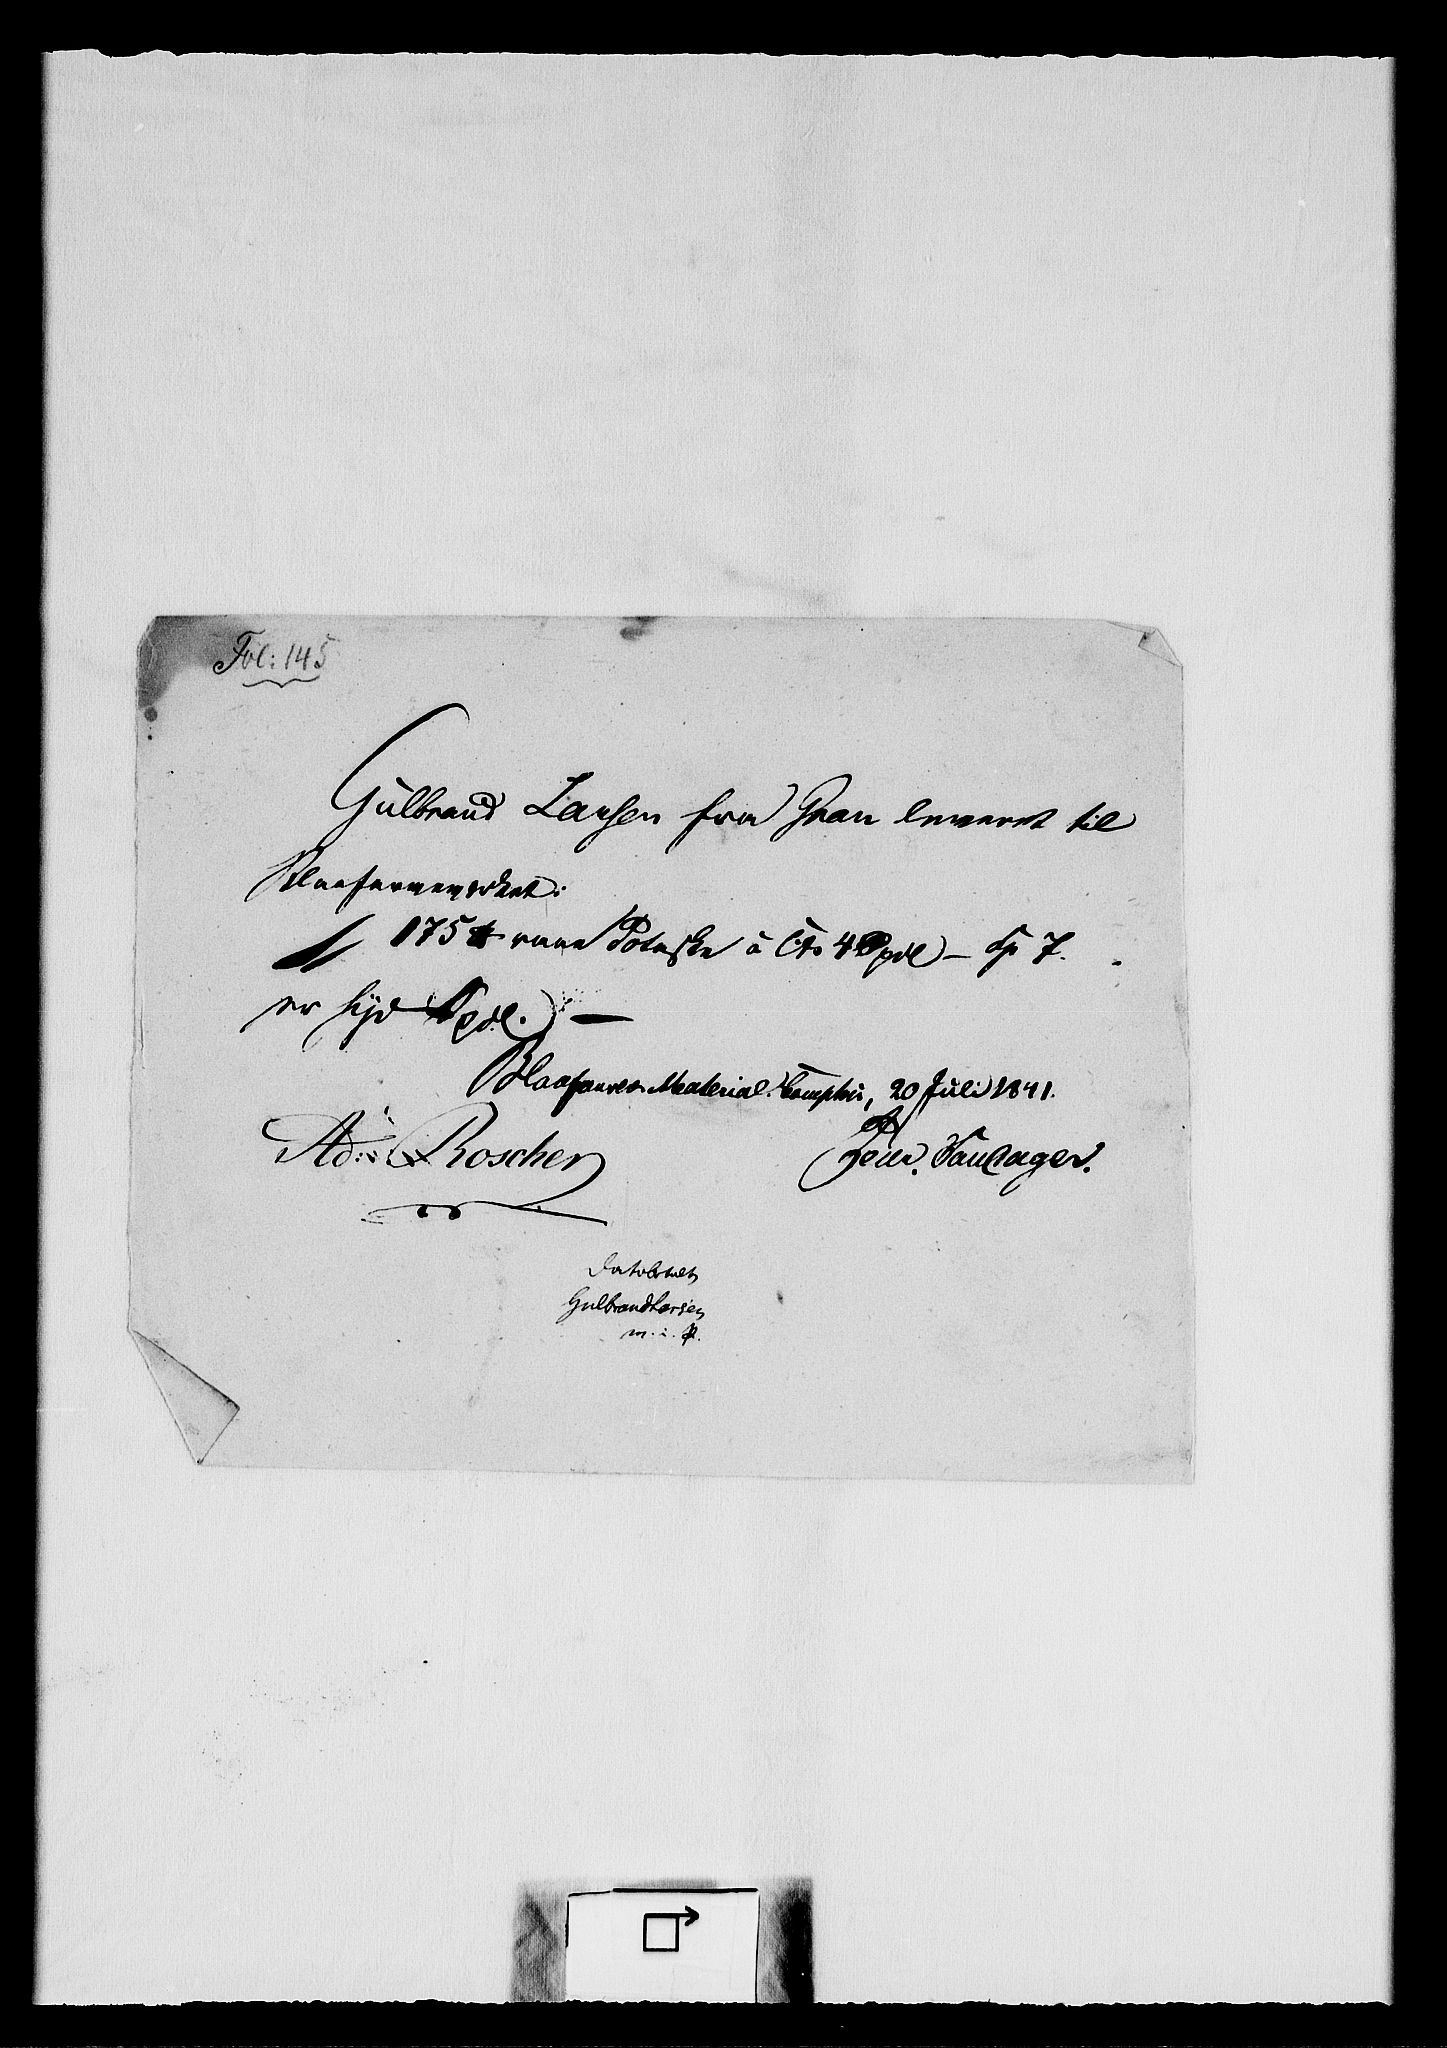 Fol: 145
Gulbrand Larsen fra Gran leveret til
Blaafarveværket:
175 ℔ raae Potaske à Ct. 4 Spdl – Sp 7.
er syv Spdl. –
Blaafarve-Material-Comptoir, 20 Juli 1841.
Ad: Roscher
Gulbrand Larsen
m. i. P.